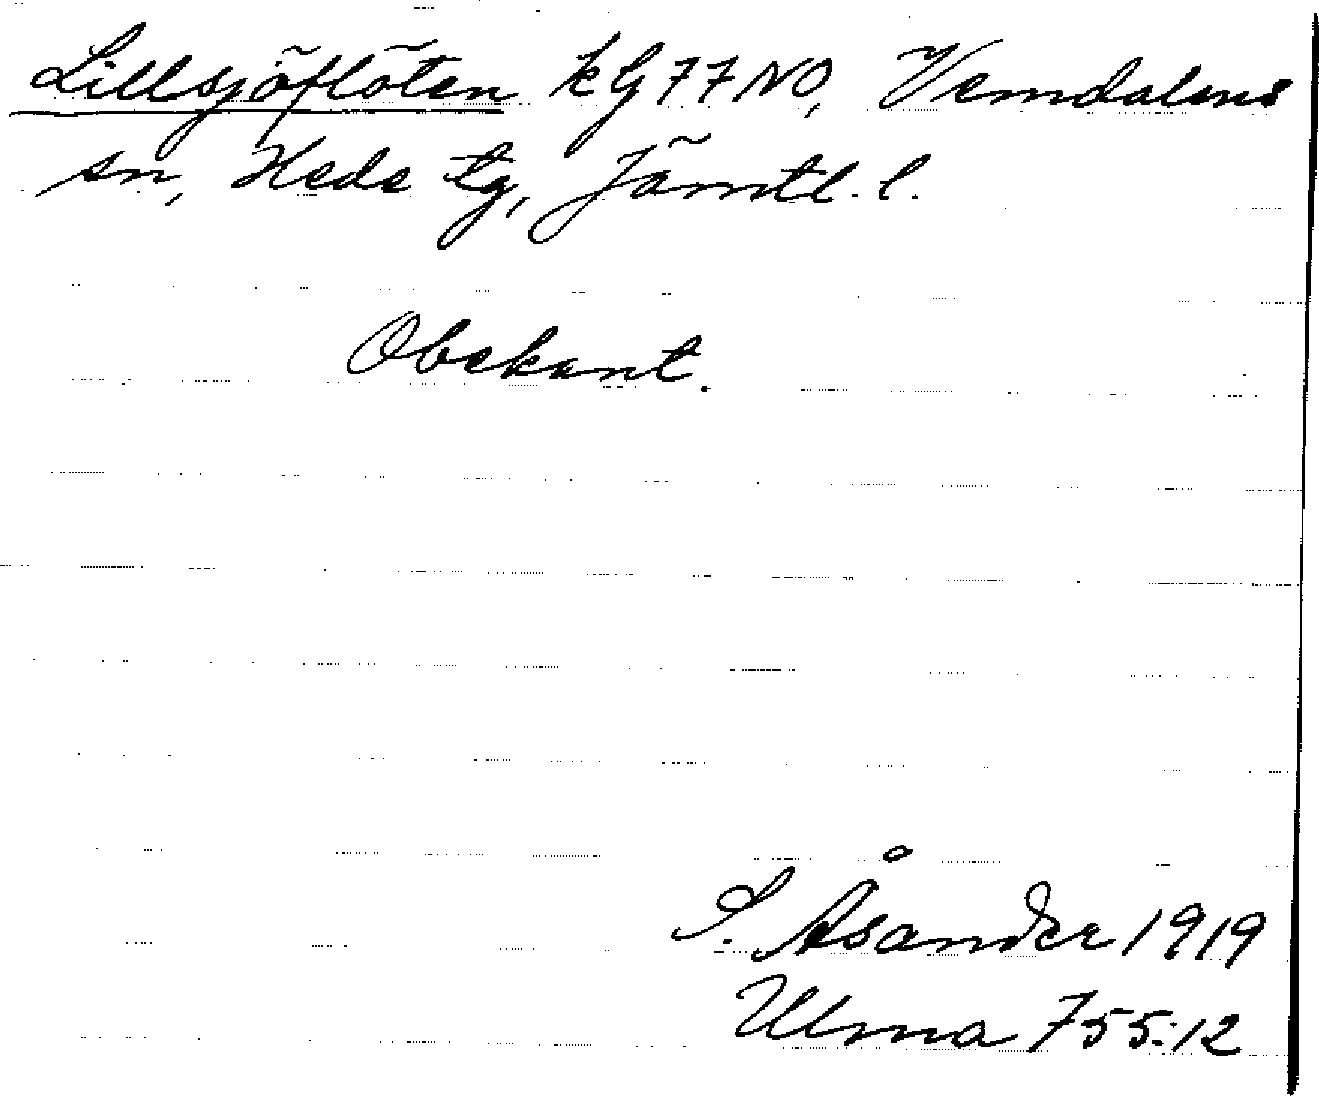 Lillsjöflöten kG77NO, Vemdalens
sn, Hede tg, Jämtl. l.
Obekant.
S. Åsander 1919
Ulma 755:12